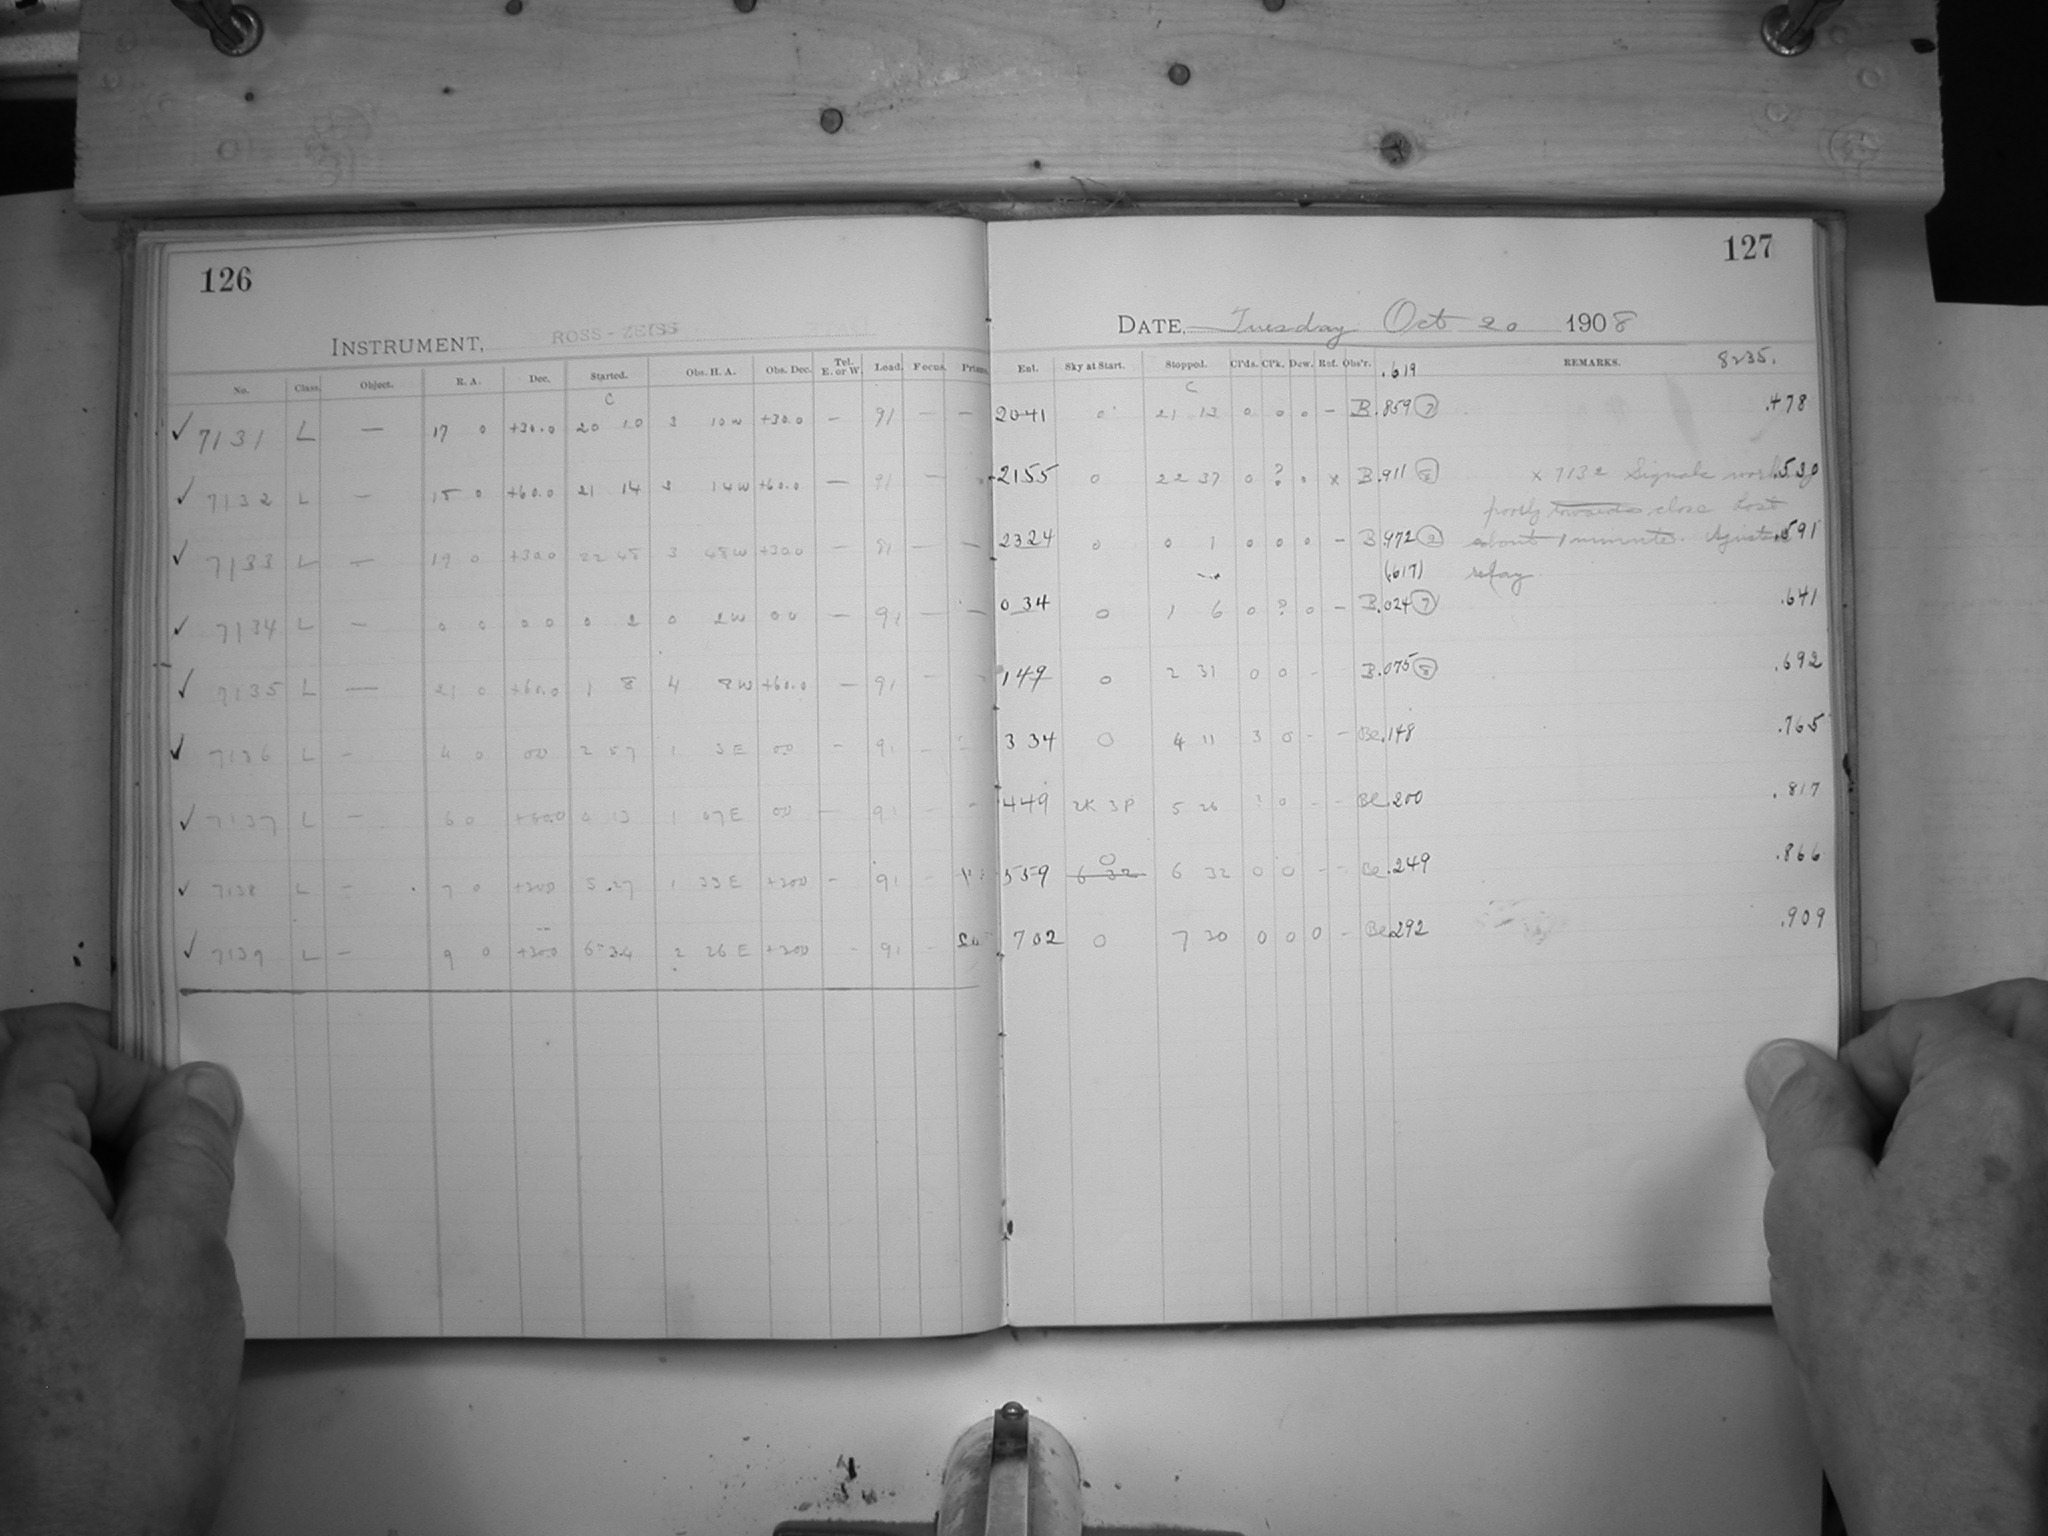 126
INSTRUMENT, ROSS-ZEISS
No. Class. Object. R. A. Dec. Started. Obs. H. A. Obs. Dec. Tel. E. or W. Load. Focus.
C
✓ 7131 L — 17 0 +30.0 20 10 3 10 W +30.0 — 91 — —
✓ 7132 L — 15 0 +60.0 21 14 3 14 W +60.0 — 91 —
✓ 7133 L — 19 0 +30.0 22 48 3 48 W +30.0 — 91 — —
✓ 7134 L — 0 0 0 0 0 2 0 2 W 0 0 — 91 — —
✓ 7135 L — 21 0 +60.0 1 8 4 8 W +60.0 — 91 —
✓ 7136 L — 4 0 00 2 57 1 3 E 00 — 91 —
✓ 7137 L — 6 0 13 1 07 E 00 — 91 —
✓ 7138 L — 7 0 +300 5 27 1 33 E +300 — 91 —
✓ 7139 L — 9 0 +300 6 34 2 26 E +300 - 91 -
127
DATE, Tuesday Oct 20 1908
Ent. Sky at Start. Stopped. Cl'ds. Cl'k. Dew. Ref. Obs'r. .619 REMARKS. 8235.
C
2041 0 21 13 0 0 0 - B .859 7 .478
2155 0 22 37 0 ? 0 x B .911 8 x 7132 Signals .530
poorly towards close Lost
2324 0 0 1 0 0 0 - B .972 2 about 1 minute. .591
(.617) relay
0 34 0 1 6 0 ? 0 - B .024 7 .641
149 0 2 31 0 0 - B .075 8 .692
3 34 0 4 11 3 0 - - Be .148 .765
449 2K 3P 5 26 ! 0 - - Be .200 .817
0
559 6 32 6 32 0 0 - - Be .249 .866
702 0 7 20 0 0 0 - Be .292 .909